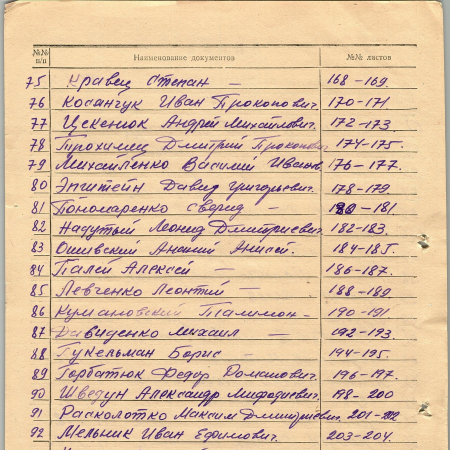 №№ п/п Наименование документов №№ листов
75 Кравец Степан — 168-169.
76 Косанчук Иван Прокопович. 170-171
77 Цекенюк Андрей Михайлович. 172-173.
78 Прохимец Дмитрий Прокопович 174-175.
79 Михайленко Василий Иванов. 176-177.
80 Эпштейн Давид Григорьевич. 178-179.
81 Пономаренко Сверид — 180-181.
82 Надутый Леонид Дмитриевич. 182-183.
83 Ананий 184-185.
84 Палей Алексей — 186-187.
85 Левченко Леонтий — 188-189
86 — 190-191
87 Давиденко Михаил — 192-193.
88 Гукельман Борис — 194-195.
89 Горбатюк Федор Романович. 196-197.
90 Шведун Александр Мифодиевич. 198-200
91 Расколотко Максим Дмитриевич. 201-202
92 Мельник Иван Ефимович. 203-204.